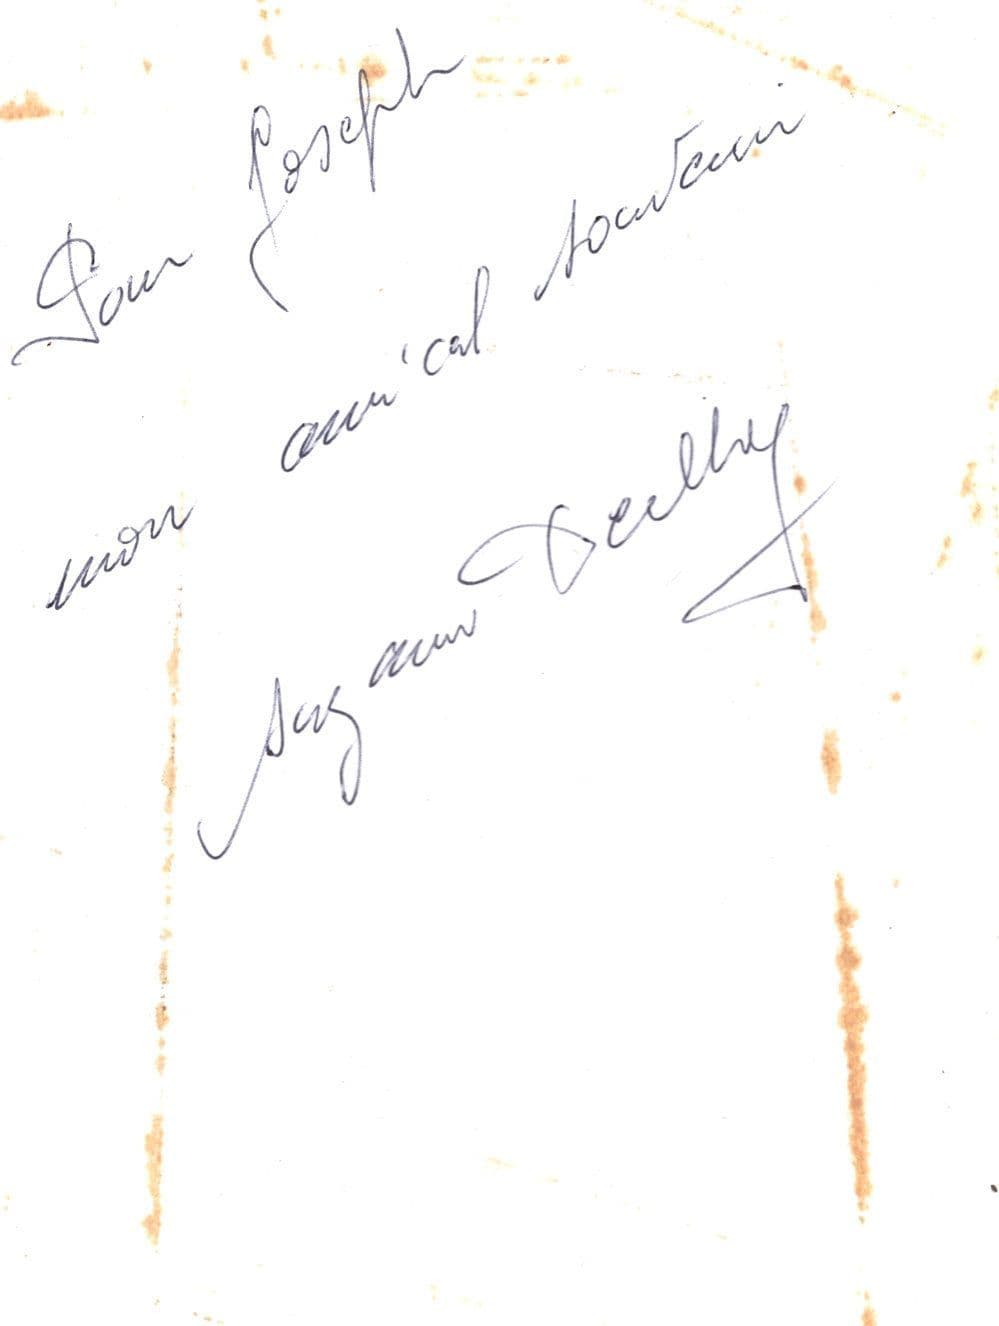 Pour Joseph
mon amical souvenir
Suzanne Deilhes